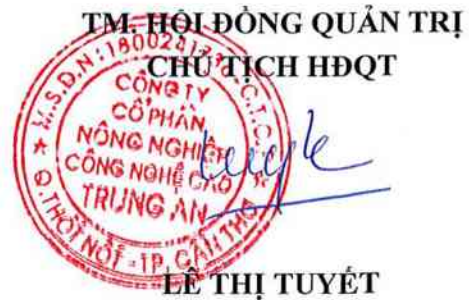 TM. HỘI ĐỒNG QUẢN TRỊ
CHỦ TỊCH HĐQT
CÔNG TY
CỔ PHẦN
NÔNG NGHIỆP
CÔNG NGHỆ CAO
TRUNG AN
Q.THỐT NỐT - TP. CẦN THƠ
LÊ THỊ TUYẾT